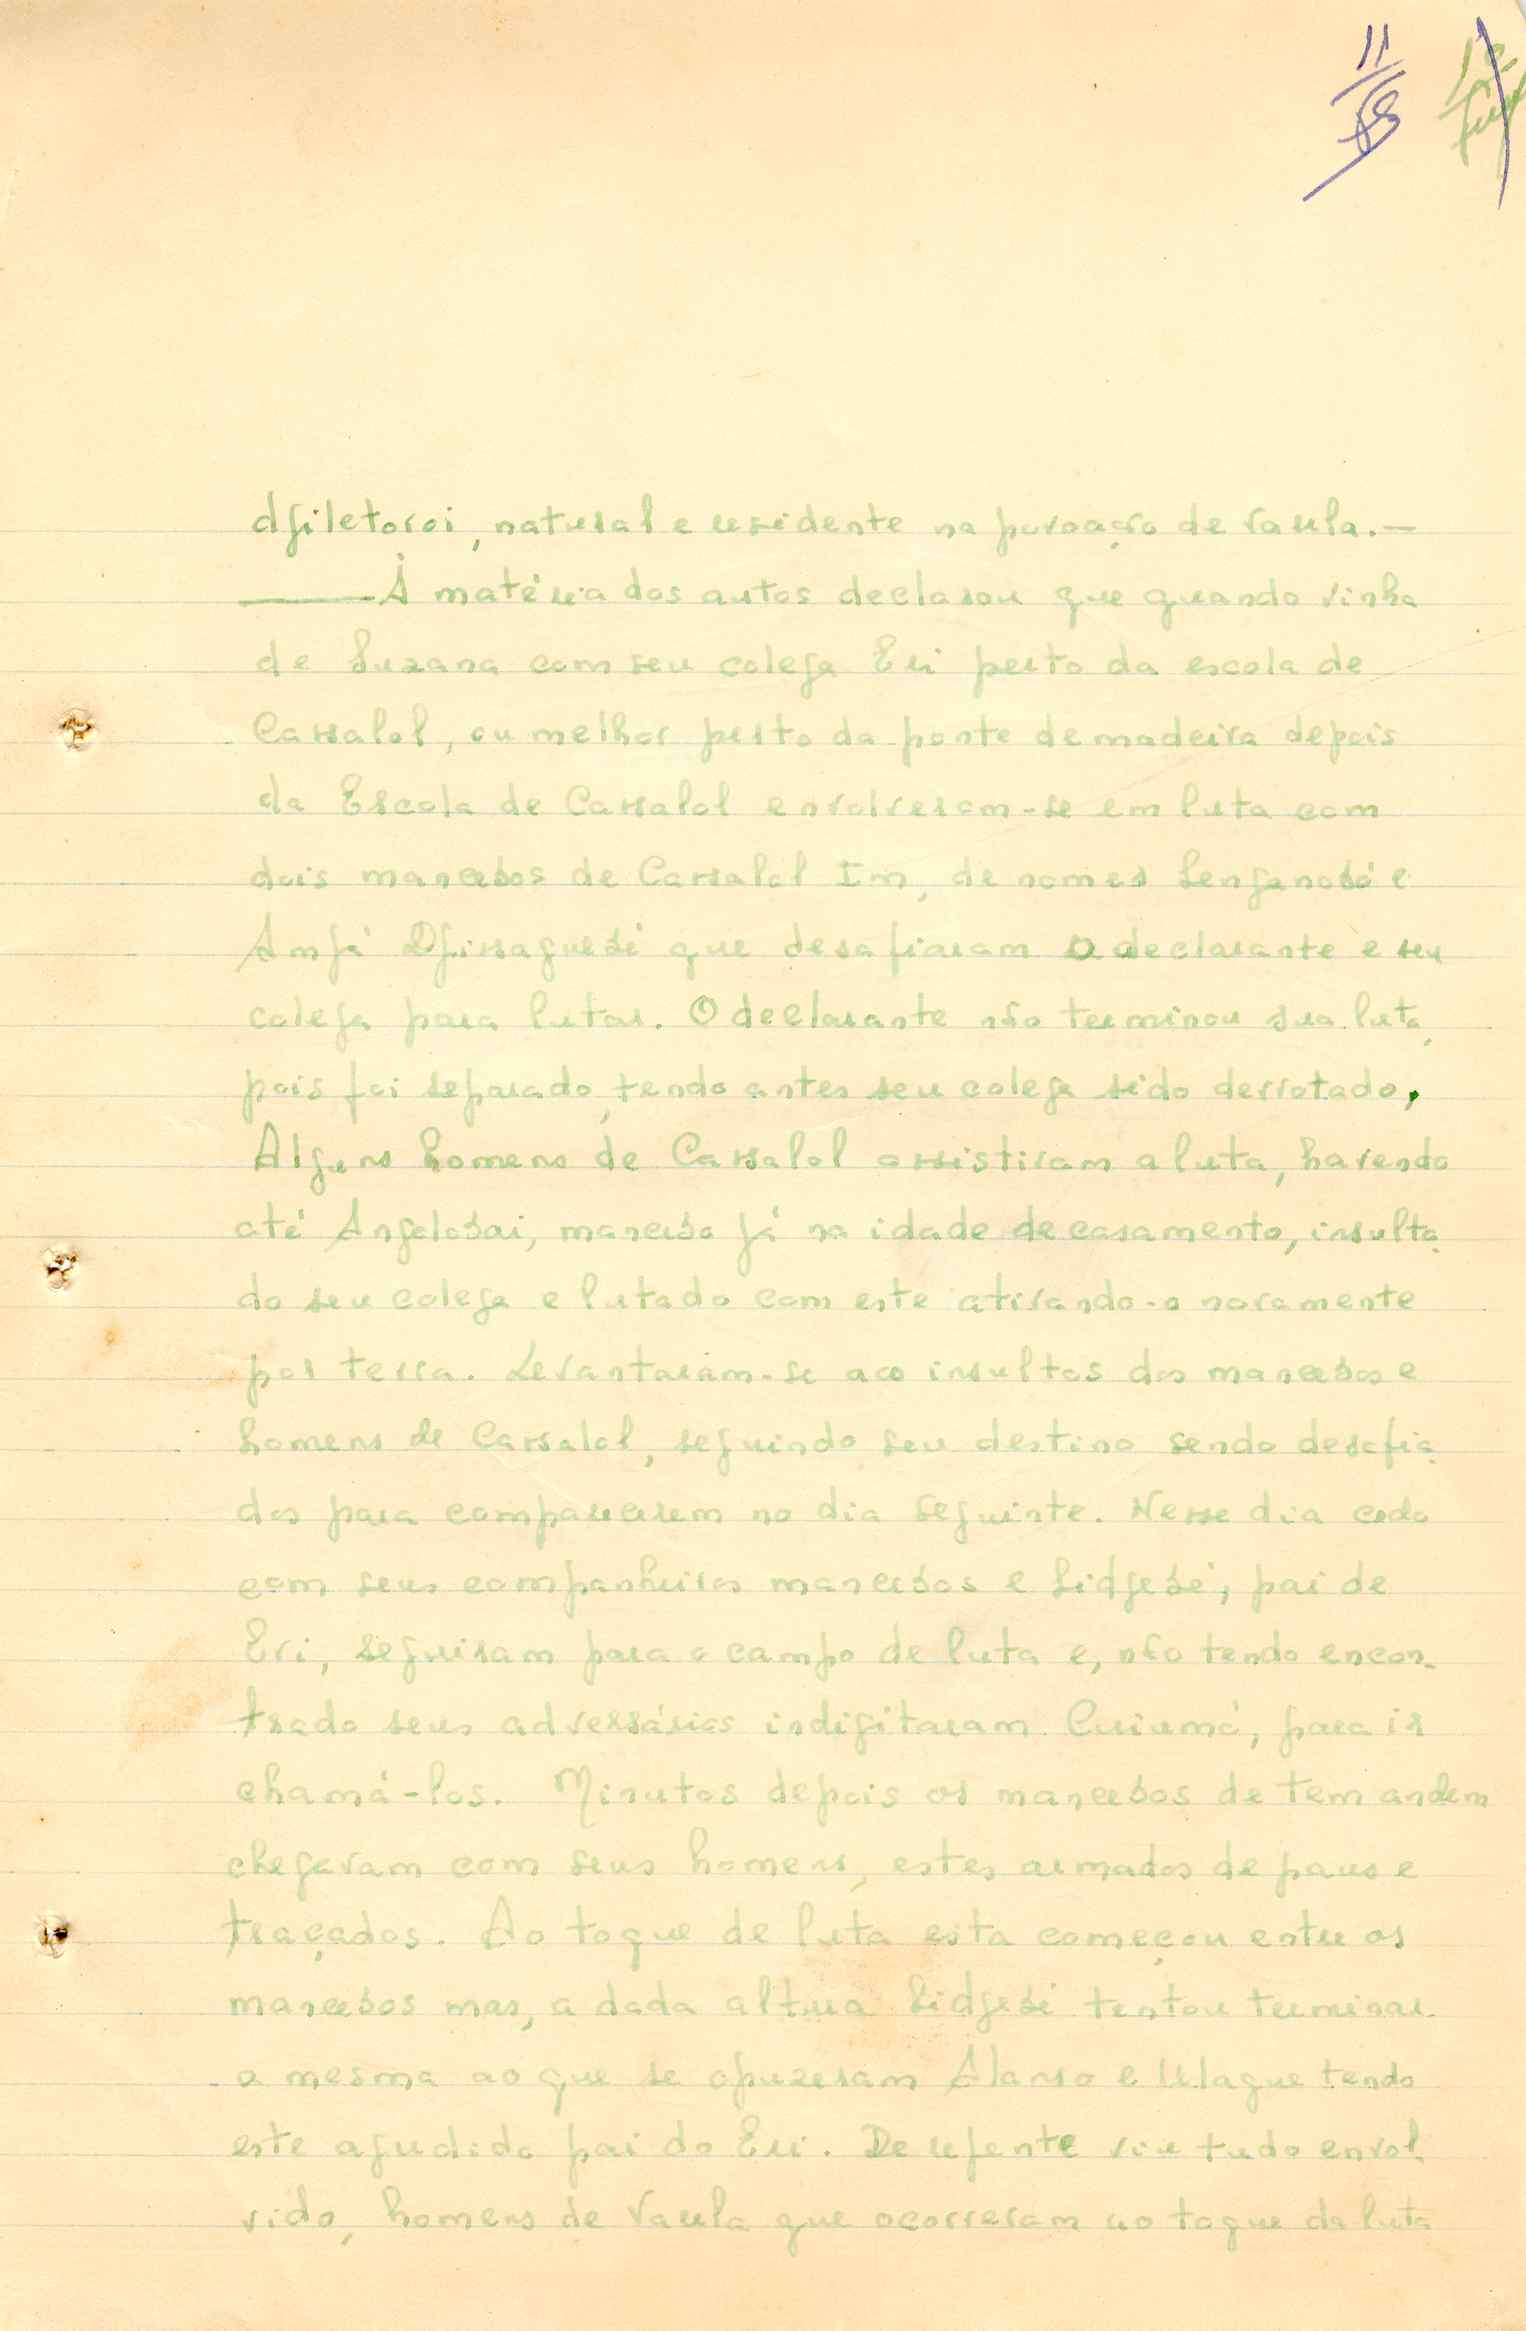 11
djiletoroi, natural e residente na povoação de Varela.—
À matéria dos autos declarou que quando vinha
de Suzana com seu colega Eri perto da escola de
Cassalol, ou melhor perto da ponte de madeira depois
da Escola de Cassalol envolveram-se em luta com
dois mancebos de Cassalol Im, de nomes Senganobó e
Anjá Djissaguebé que desafiaram o declarante e seu
colega para lutar. O declarante não terminou sua luta,
pois foi separado, tendo antes seu colega sido derrotado,
Alguns homens de Cassalol assistiram a luta, havendo
até Angolobai, mancebo já na idade de casamento, insulta
do seu colega e lutado com este atirando-o novamente
por terra. Levantaram-se aos insultos dos mancebos e
homens de Cassalol, seguindo seu destino sendo desafia
dos para comparecerem no dia seguinte. Nesse dia cedo
com seus companheiros mancebos e Sidjebé, pai de
Eri, seguiram para o campo de luta e, não tendo encon-
trado seus adversários indigitaram Curiumó, para ir
chamá-los. Minutos depois os mancebos de tem andem
chegavam com seus homens, estes armados de paus e
traçados. Ao toque de luta esta começou entre os
mancebos mas, a dada altura Sidjebé tentou terminar
a mesma ao que se opuzeram Alanso e Ulague tendo
este agudido pai do Eri. De repente viu tudo envol
vido, homens de Varela que ocorreram ao toque da luta